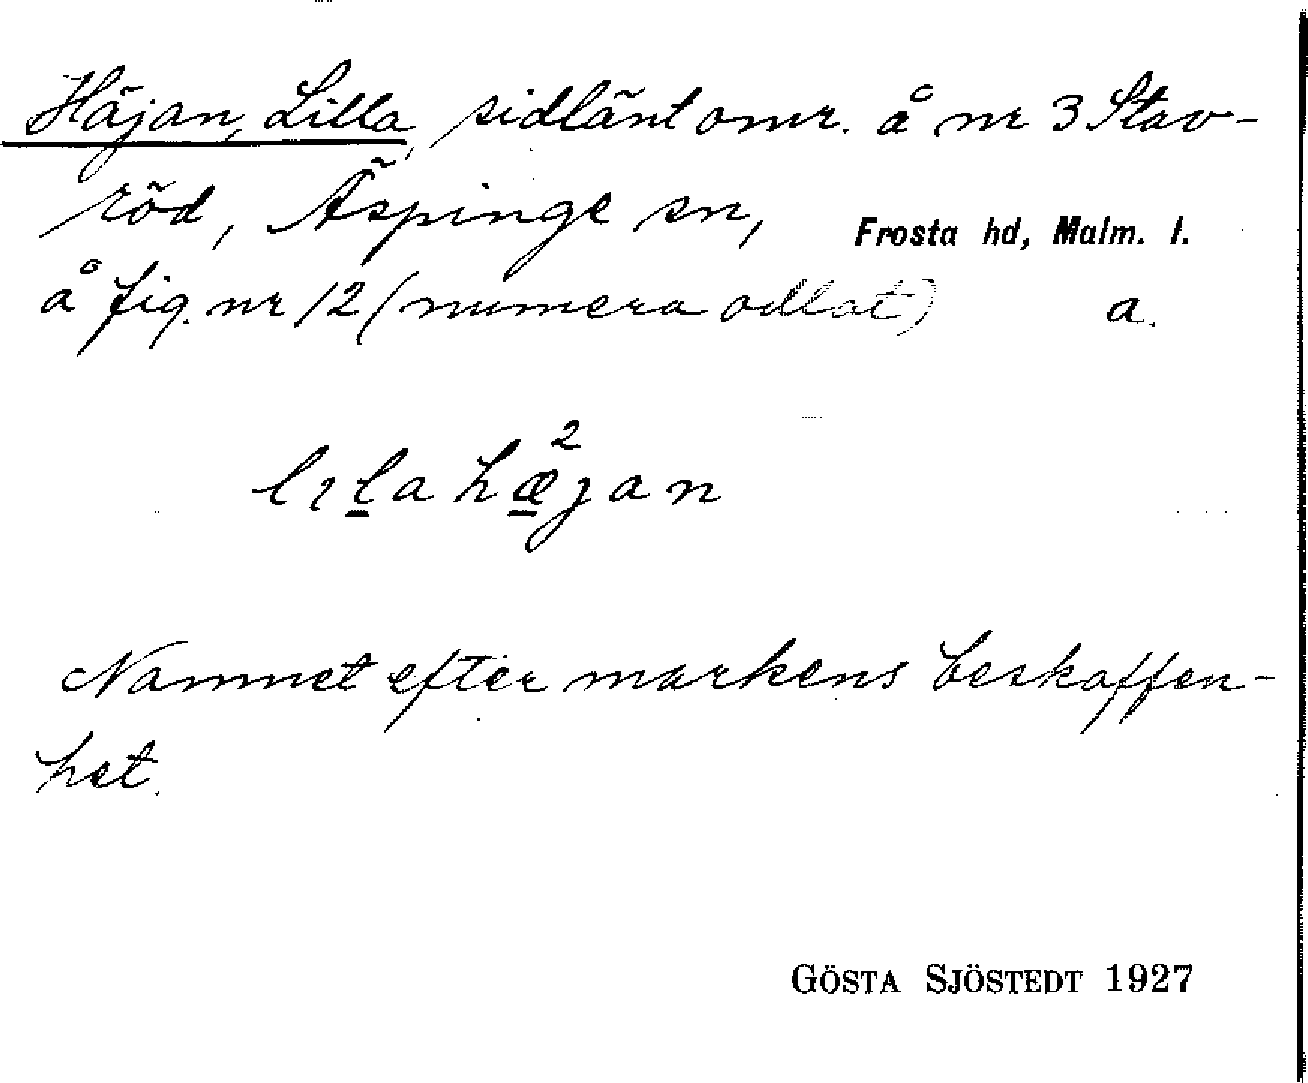 Häjan, Lilla, sidlänt omr. å nr 3 Stav-
röd, Äspinge sn, Frosta hd, Malm. l.
å fig. nr 12 (numera odlat) a.
lıla hæ²jan
Namnet efter markens beskaffen-
het.
GÖSTA SJÖSTEDT 1927